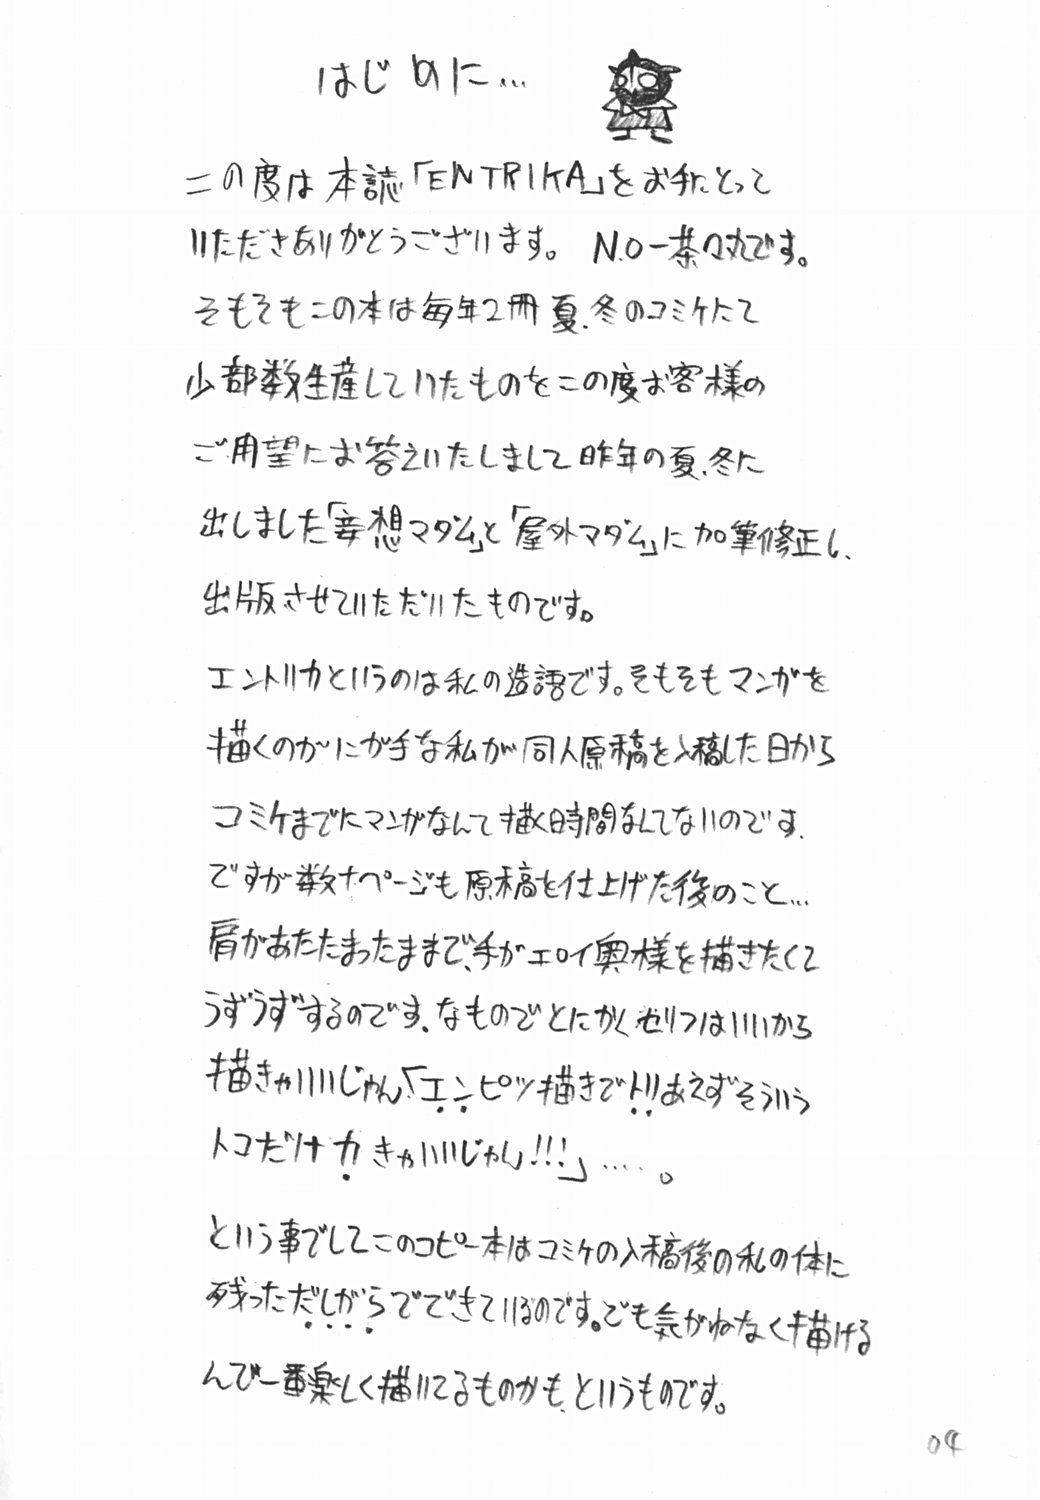 はじめに...
この度は本誌「ENTRIKA」をお手にとって
いただきありがとうございます。 N.O-茶々丸です。
そもそもこの本は毎年2冊夏、冬のコミケにて
少部数生産していたものをこの度お客様の
ご用望にお答えいたしまして昨年の夏、冬に
出しました「妄想マダム」と「屋外マダム」に加筆修正し、
出版させていただいたものです。
エントリカというのは私の造語です。そもそもマンガを
描くのがにが手な私が同人原稿を入稿した日から
コミケまでにマンガなんて描く時間なんてないのです。
ですが数十ページも原稿を仕上げた後のこと...
肩があたたまったままで、手がエロイ奥様を描きたくて
うずうずするのです。なものでとにかくセリフはいいから
描きゃいいじゃん、「エンピツ描きでトリあえずそういう
トコだけカきゃいいじゃん!!!」.....。
という事でしてこのコピー本はコミケの入稿後の私の体に
残っただしがらでできているのです。でも気がねなく描ける
んで一番楽しく描いてるものかも、というものです。
04